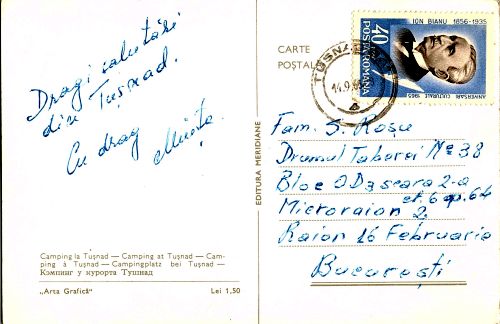 Dragi salutări
din Tușnad.
Cu drag
CARTE
POȘTALĂ
ION BIANU 1856-1935
40
POSTA ROMANA
ANIVERSARI CULTURALE 1965
TUȘNAD
14.9.65
Fam. S. Roșu
Drumul Taberei No 38
Bloc OD3 scara 2-a
et. 6 ap. 64
Microraion 2
Raion 16 Februarie
București
EDITURA MERIDIANE
Camping la Tușnad — Camping at Tușnad — Cam-
ping à Tușnad — Campingplatz bei Tușnad —
Кэмпинг у курорта Тушнад
„Arta Grafică"
Lei 1,50